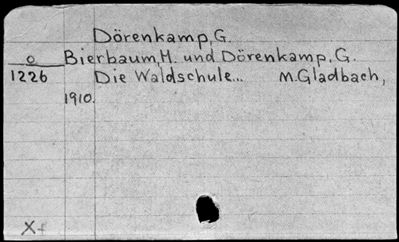 Dörenkamp, G.
o Bierbaum, H. und Dörenkamp, G.
1226 Die Waldschule... M.Gladbach,
1910.
X